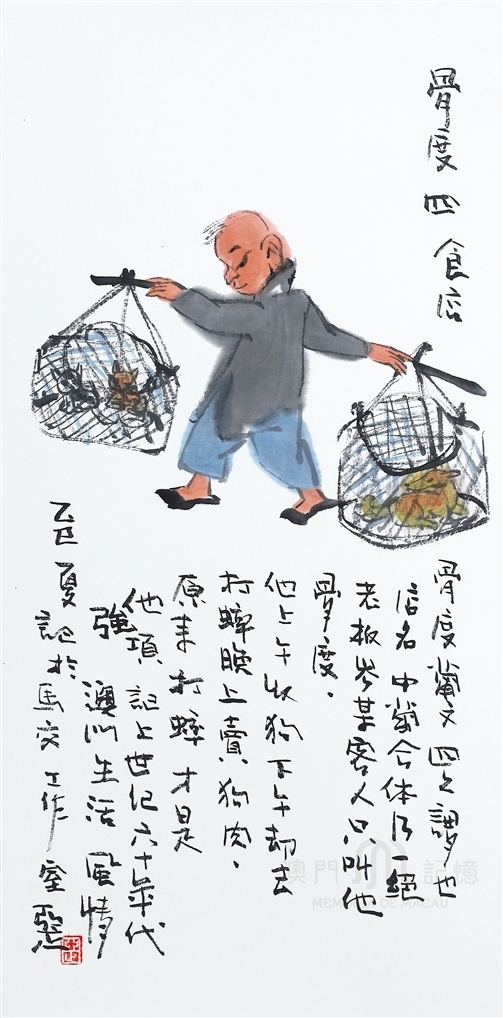 骨度四食店
骨度葡文四之謂也
店名中葡合体乃一絕
老板岑某客人只叫他
骨度.
他上午收狗下午却去
打蟀晚上賣狗肉.
原来打蟀才是
他強項 記上世纪六十年代
澳门生活風情
乙巳夏記於馬交工作室
澳門記憶
MEMÓRIA DE MACAU